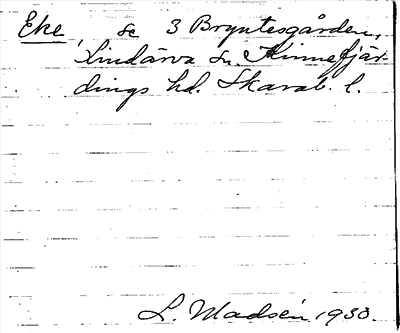 Eke, se 3 Bryntesgården,
Lindärva sn. Kinnefjär-
dings hd. Skarab. l.
L. Madsén 1930.